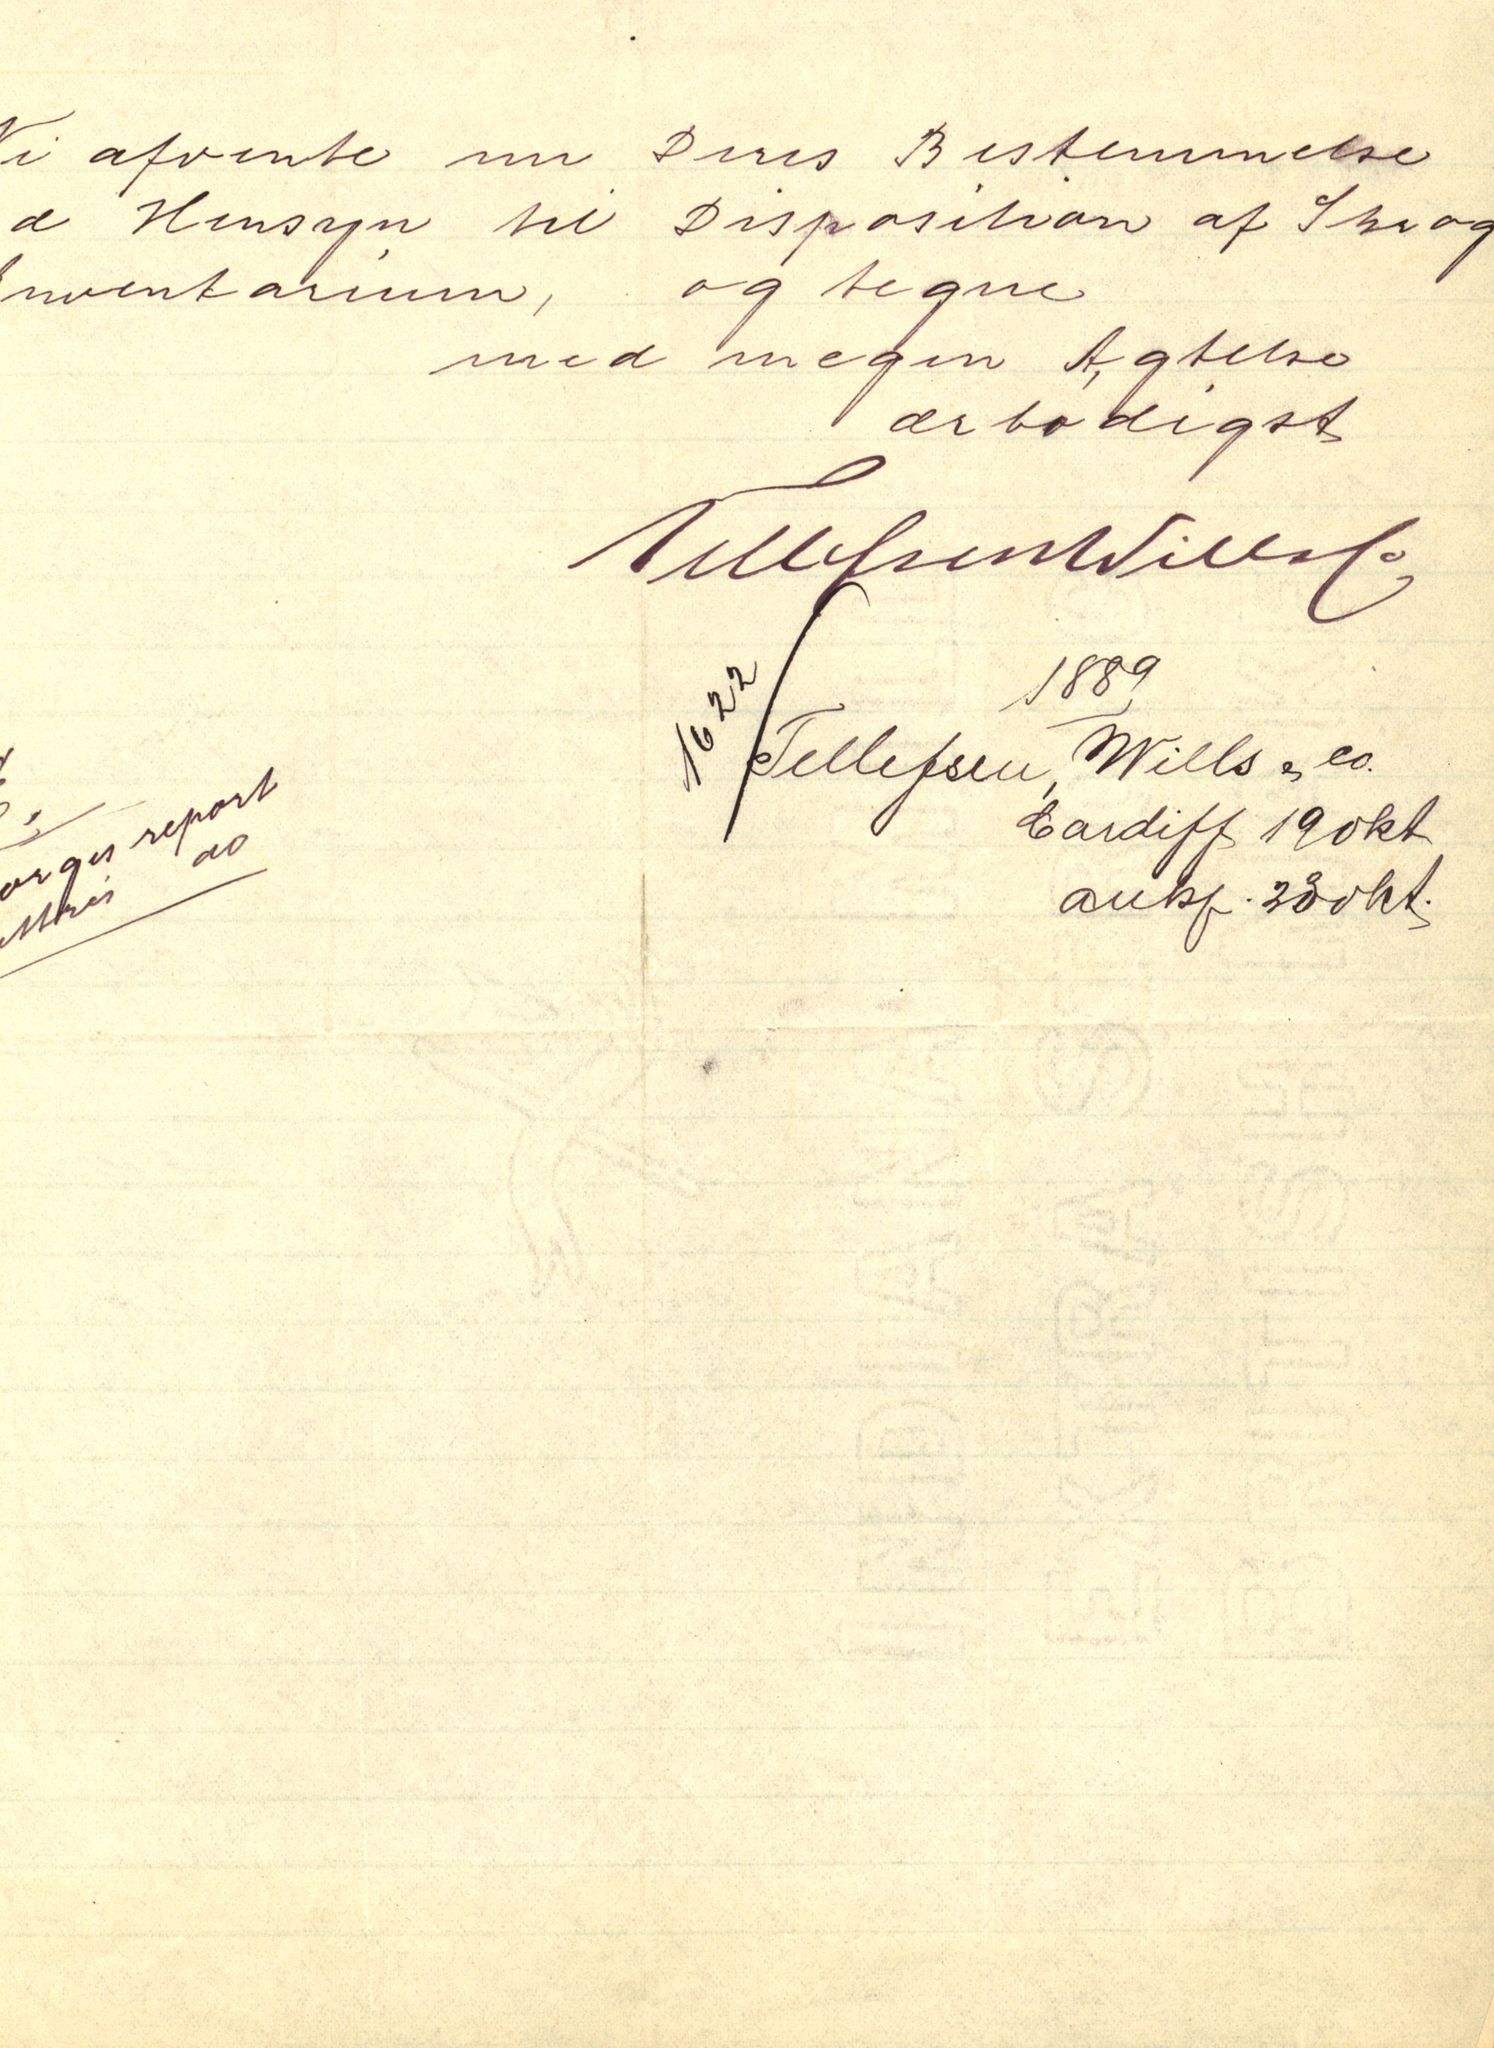 Vi afvente nu Deres Bestemmelse
d Hensyn til Disposition af Skrog
Inventarium, og tegne
med megen Agtelse
ærbødigst
Tellefsen Wills Co
1622
1889
Tellefsen, Wills & co.
Cardiff 19 okt
ank. 23 okt.
orges report
do